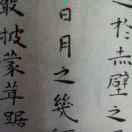 於赤壁之
日月之幾
巖披蒙茸踞